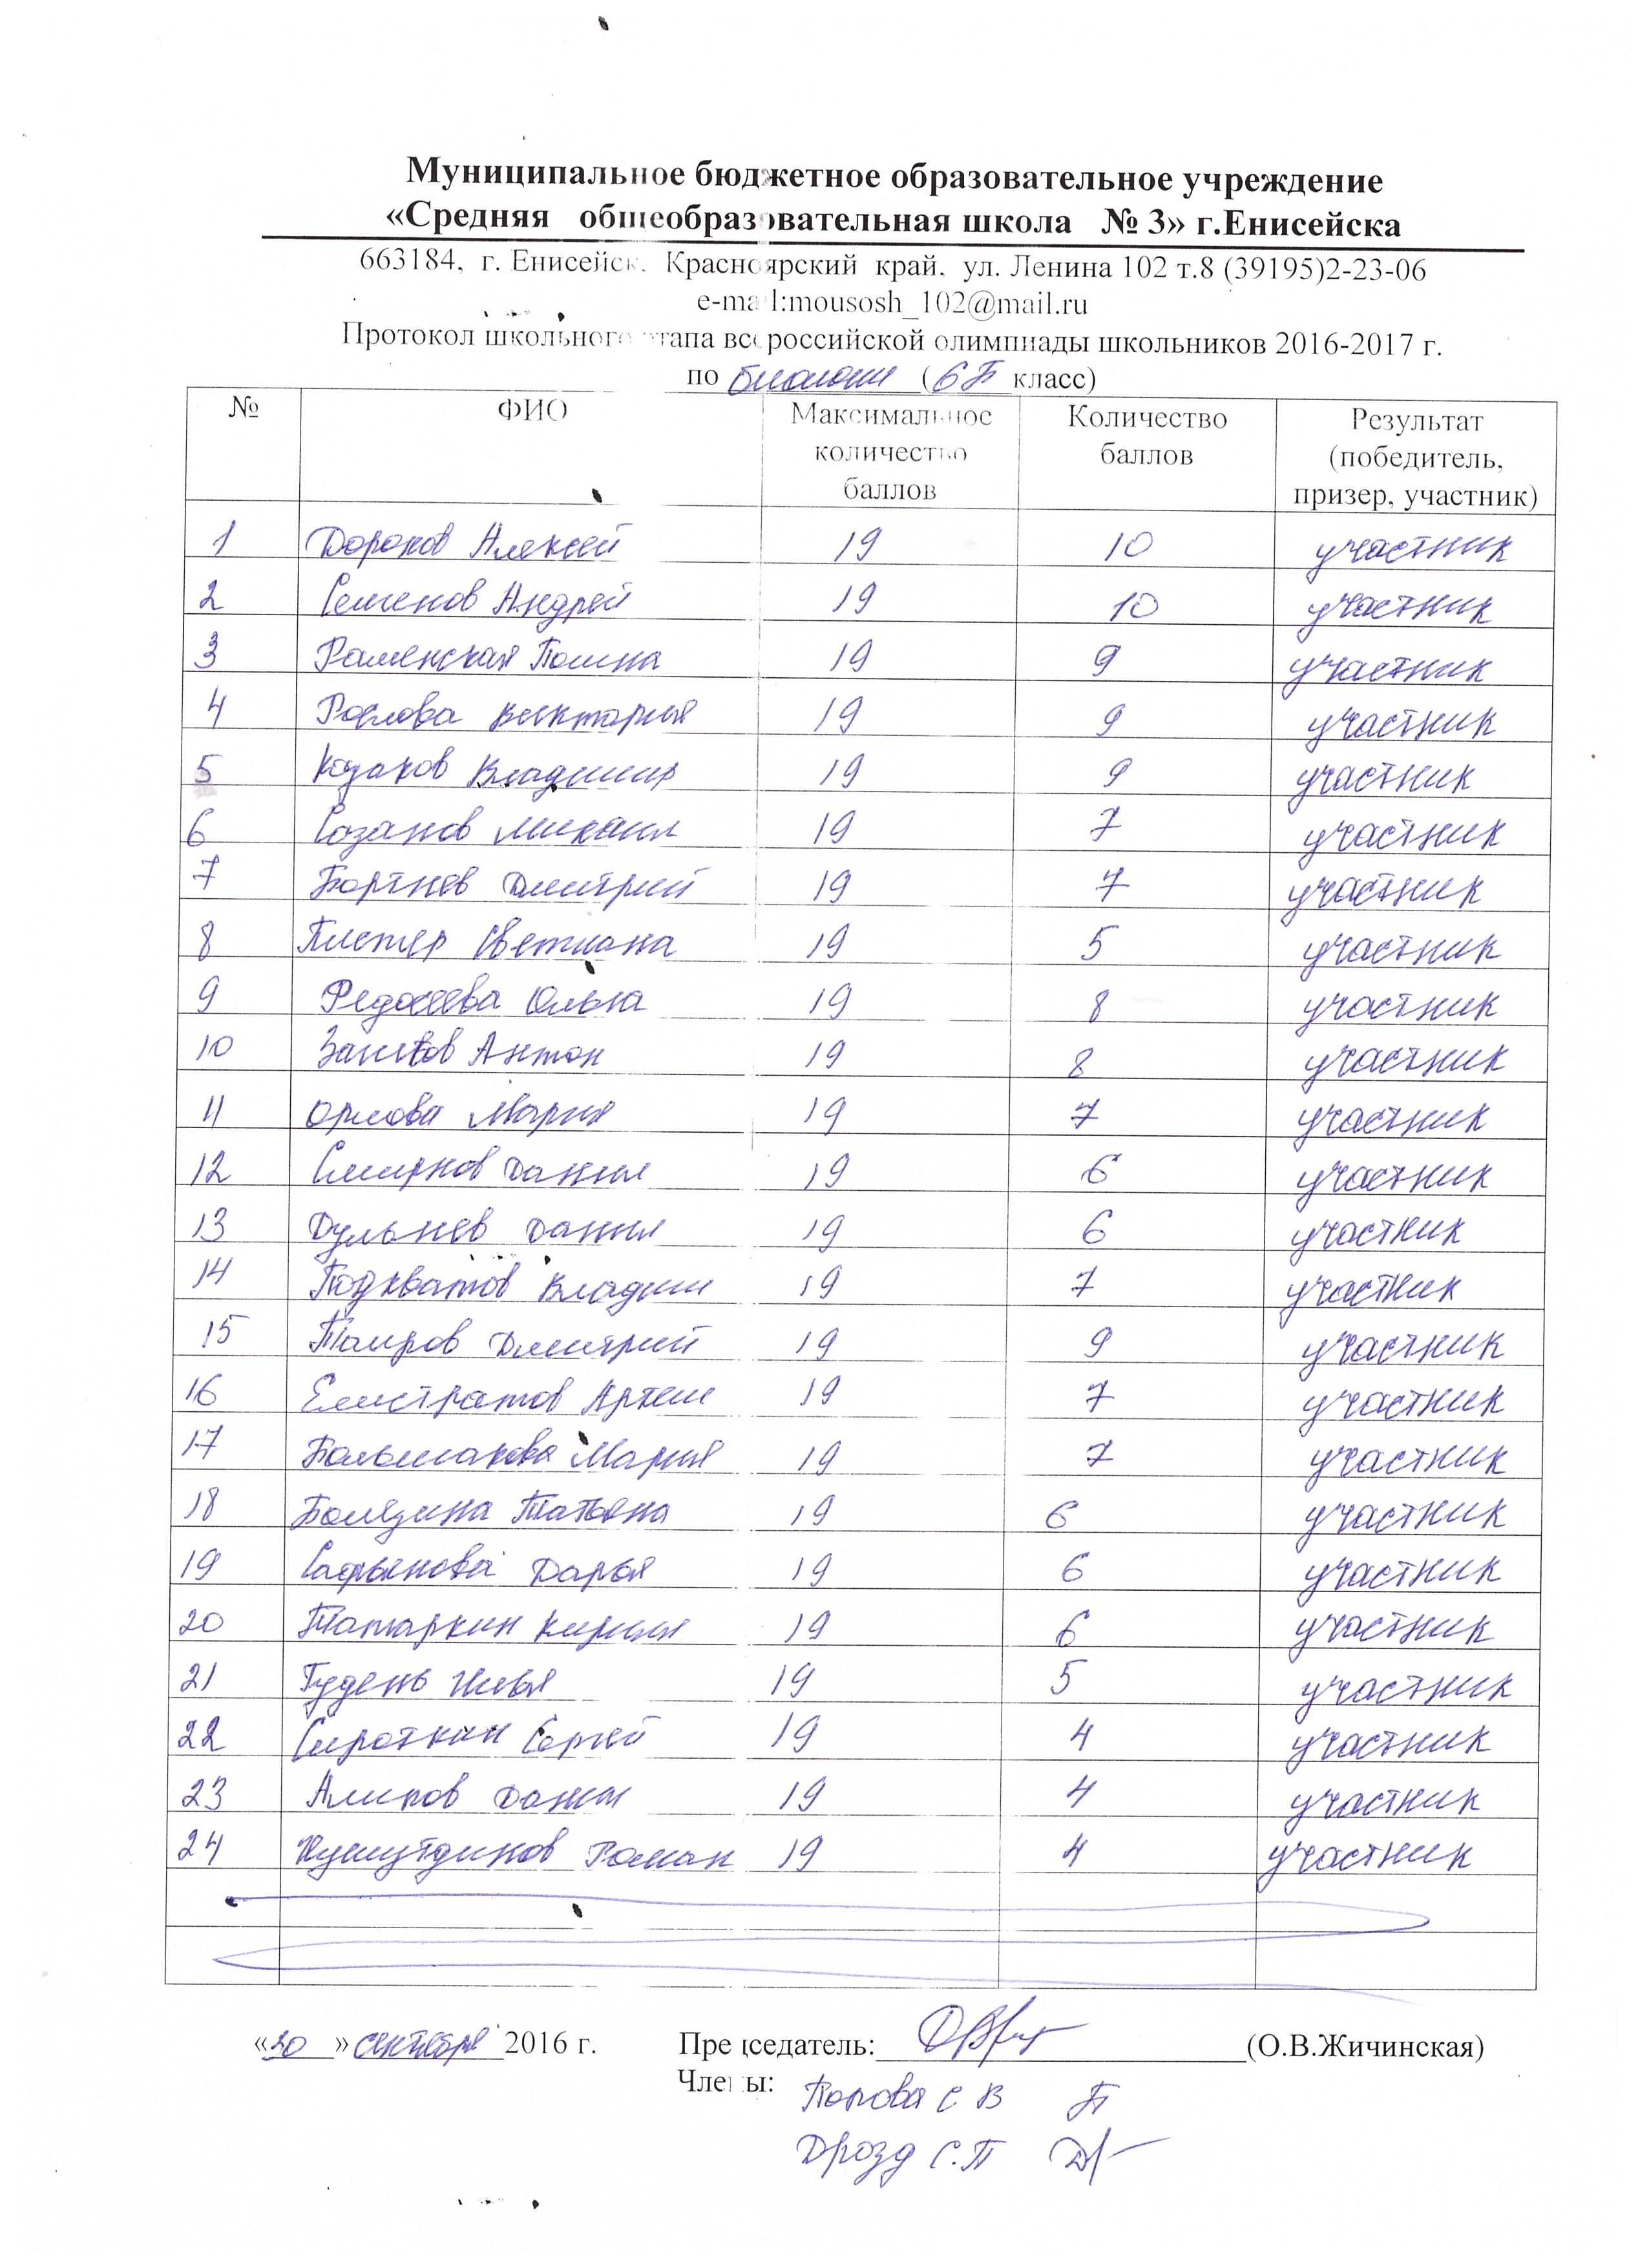 Муниципальное бюджетное образовательное учреждение
«Средняя общеобразовательная школа № 3» г.Енисейска
663184, г. Енисейск, Красноярский край, ул. Ленина 102 т.8 (39195)2-23-06
e-mail:mousosh_102@mail.ru
Протокол школьного этапа всероссийской олимпиады школьников 2016-2017 г.
по биологии (6Б класс)
№ ФИО Максимальное количество баллов Количество баллов Результат (победитель, призер, участник)
1 Доронов Алексей 19 10 участник
2 Семенов Андрей 19 10 участник
3 Раменская Полина 19 9 участник
4 Рослова Виктория 19 9 участник
5 Казаков Владимир 19 9 участник
6 Созанов Михаил 19 7 участник
7 Бортнев Дмитрий 19 7 участник
8 Светлана 19 5 участник
9 Федосеева Ольга 19 8 участник
10 Антон 19 8 участник
11 Орлова Мария 19 7 участник
12 Смирнов Данил 19 6 участник
13 Дульнев Данил 19 6 участник
14 Подхватов Владим 19 7 участник
15 Таиров Дмитрий 19 9 участник
16 Елистратов Артем 19 7 участник
17 Большакова Мария 19 7 участник
18 Татьяна 19 6 участник
19 Сафьянова Дарья 19 6 участник
20 Татаркин Кирилл 19 6 участник
21 Гудень Илья 19 5 участник
22 Сироткин Сергей 19 4 участник
23 Алипов Данил 19 4 участник
24 Роман 19 4 участник
«20» сентября 2016 г. Председатель: (О.В.Жичинская)
Члены:
Попова С В
Дрозд С.П